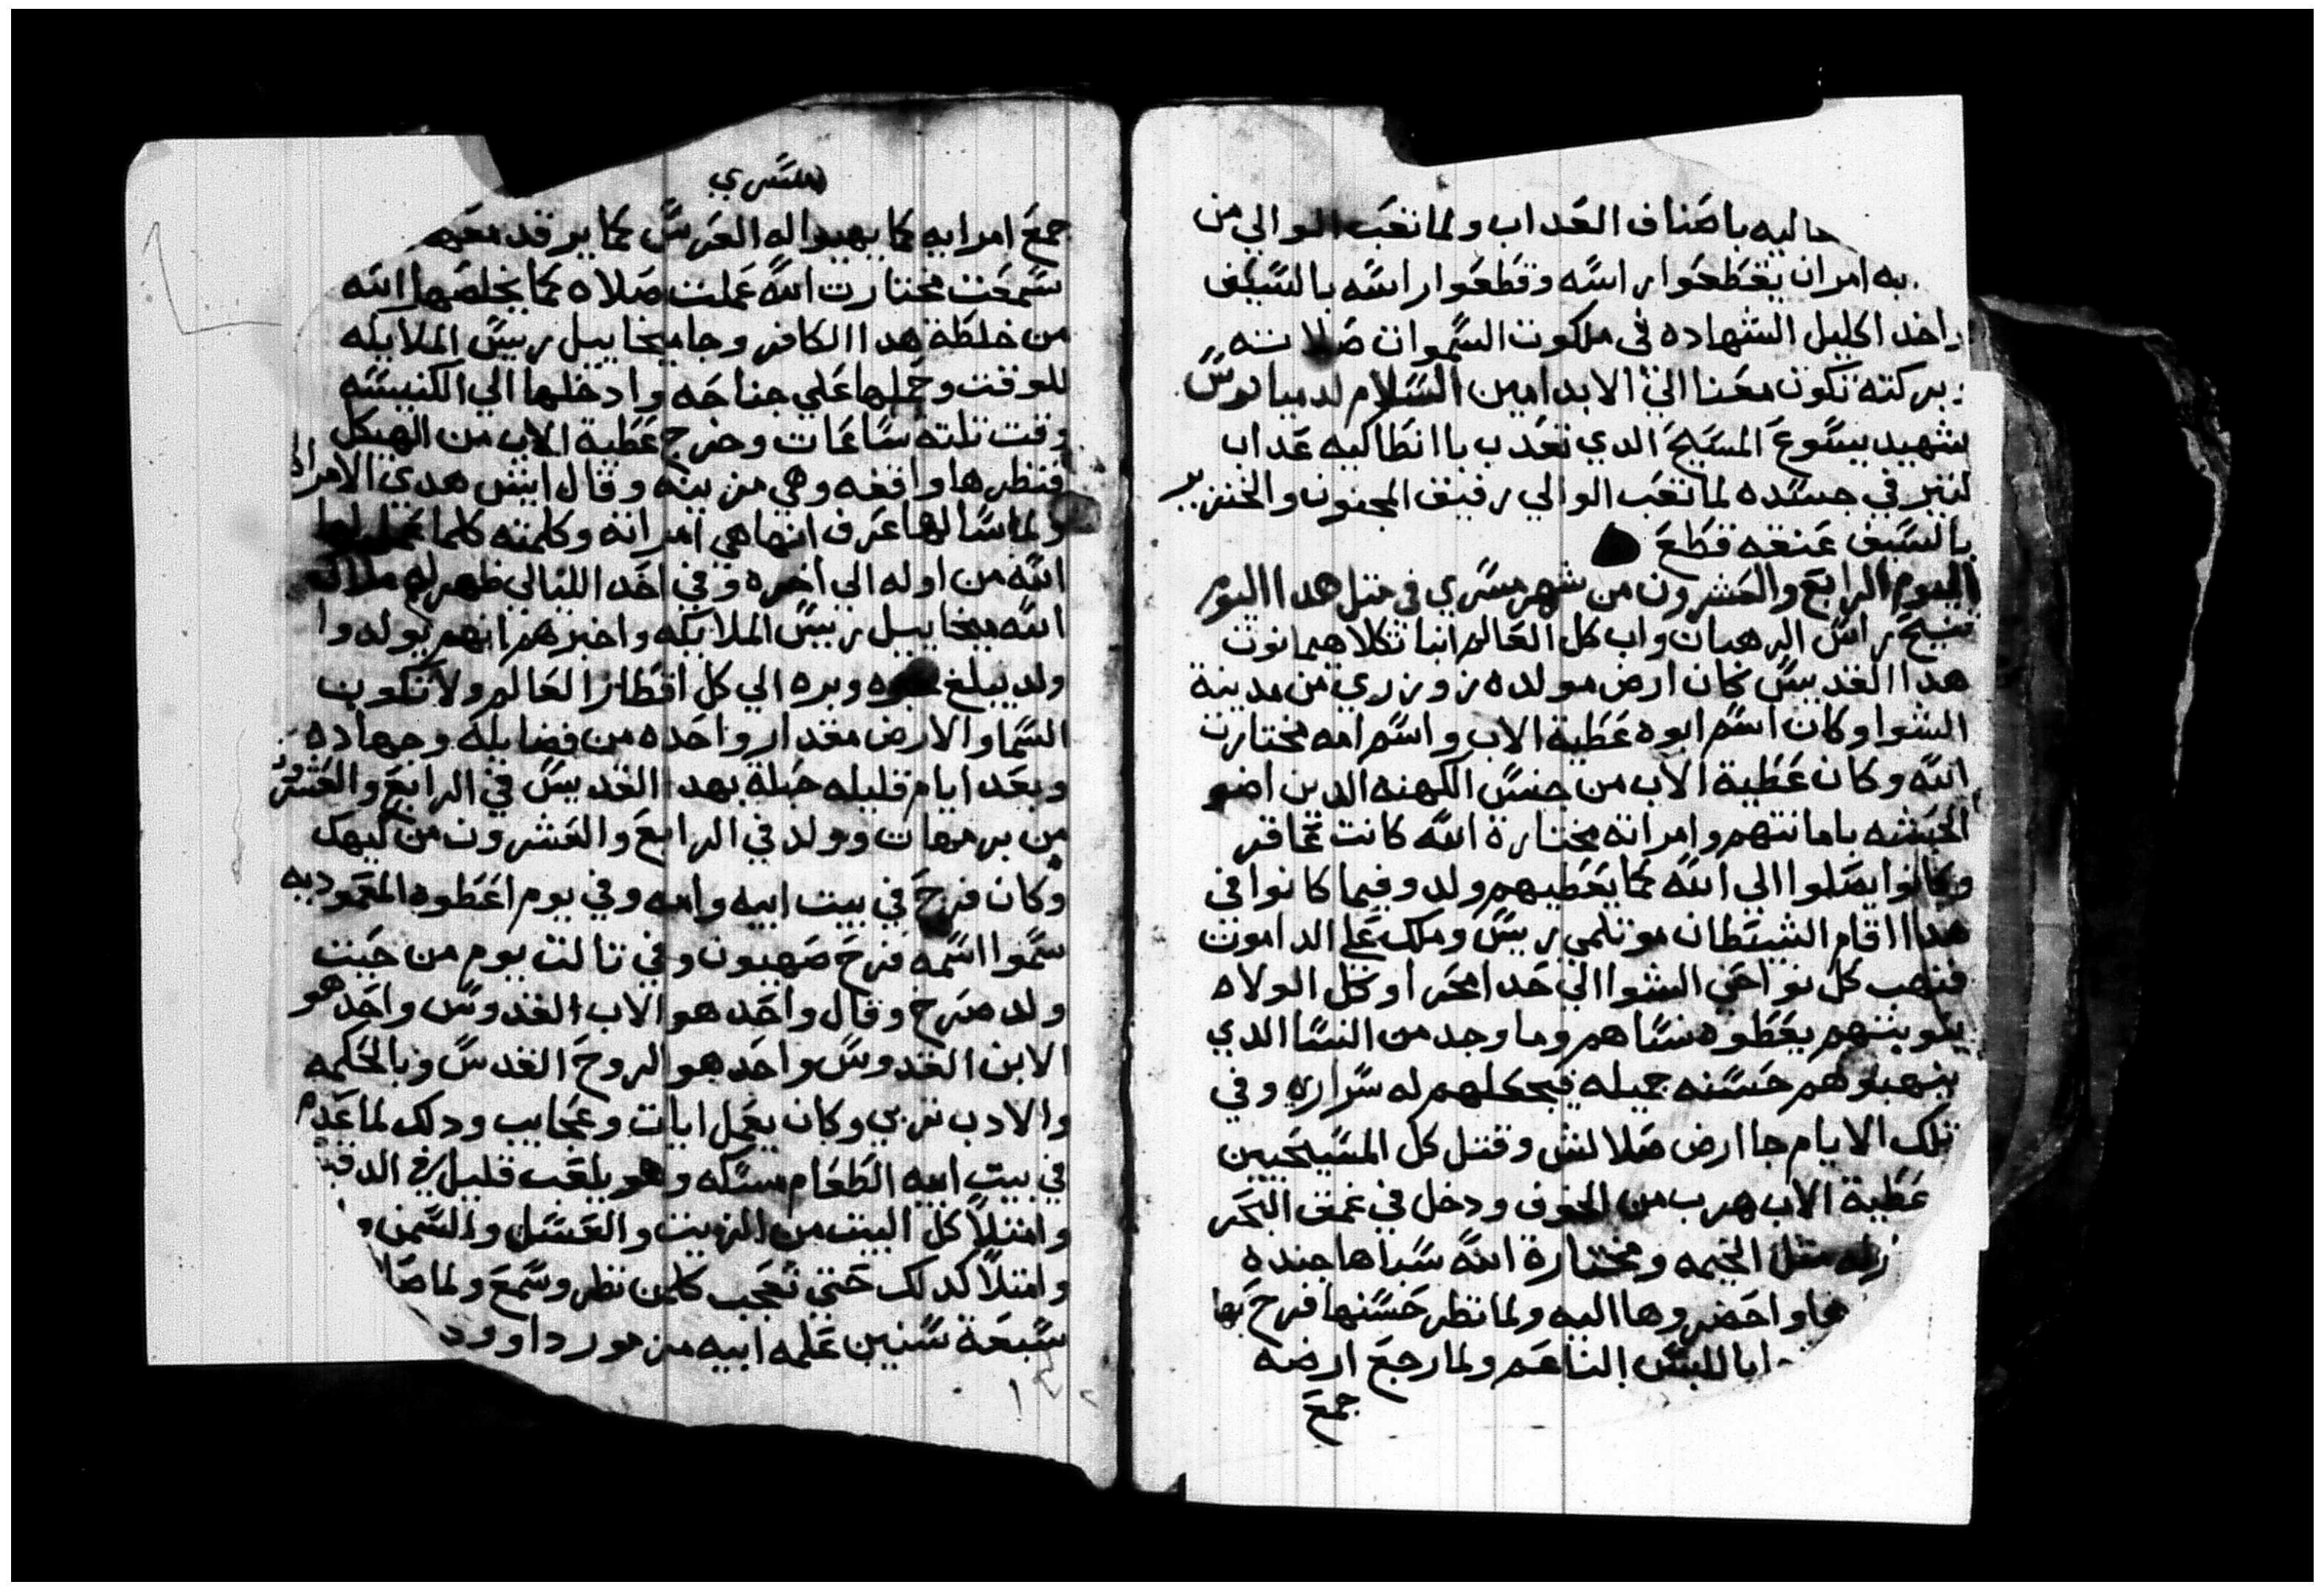 حاليه باصناف العداب ولما تعب الوالي من
به امر ان يقطعوا راسه وقطعوا راسه بالسيف
واخد اكليل الشهاده في ملكوت السموات صلاته
وبركته تكون معنا الي الابد امين السلام لدميانوس
شهيد يسوع المسيح الدي تعدب باانطاكيه عداب
كتير في جسده لما تعب الوالي رفيق المجنون والخنزير
بالسيف عنقه قطع
اليوم الرابع والعشرون من شهر مسري في متل هدا اليوم
تنيح راس الرهبان واب كل العالم انبا تكلاهيمانوت
هدا القديس كان ارض مولده زوزري من مدينة
الشوا وكان اسم ابوه عطية الاب واسم امه مختارت
الله وكان عطية الاب من جنس الكهنه الدين اضو
الحبشه بامانتهم وامراته مختارة الله كانت عاقر
وكانوا يصلوا الي الله كما يعطيهم ولد وفيما كانوا في
هدا اقام الشيطان موتلمي ريس وملك علي الداموت
فنهب كل نواحي الشوا الي حد امحرا وكل الولاه
يلوبتهم يعطوه نساهم وما وجد من النسا الدي
ينهبوهم حسنه جميله فيجعلهم له سراره وفي
تلك الايام جا ارض صلالش وقتل كل المسيحيين
عطية الاب هرب من الخوف ودخل في عمق البحر
متل الخيمه ومختارة الله سباها جنده
واحضروها اليه ولما نظر حسنها فرح بها
باللبس الناعم ولما رجع ارضه
جمع
مسري
جمع امرايه كما يهيوا له العرس كما يرقد معه
سمعت مختارت الله عملت صلاه كما يخلصها الله
من خلطة هدا الكافر وجا ميخاييل ريس الملايكه
للوقت وحملها علي جناحه وادخلها الي الكنيسه
وقت تلته ساعات وخرج عطية الاب من الهيكل
فنظرها واقفه وهي مزينه وقال ايش هدي الامراه
ولما سالها عرف انها هي امراته وكلمته كلما عمل لها
الله من اوله الي اخره وفي احد الليالي ظهر لهم ملاك
الله ميخاييل ريس الملايكه واخبرهم انهم يولدوا
ولد يبلغ خبره وبره الي كل اقطار العالم ولا تكون
السما والارض مقدار واحده من فضايله وجهاده
وبعد ايام قليله حبلة بهدا القديس في الرابع والعشرون
من برمهات وولد في الرابع والعشرون من كيهك
وكان فرح في بيت ابيه وامه وفي يوم اعطوه المعموديه
سموا اسمه فرح صهيون وفي تالت يوم من حيت
ولد صرح وقال واحد هو الاب القدوس واحد هو
الابن القدوس واحد هو الروح القدس وبالحكمه
والادب تربي وكان يعمل ايات وعجايب ودلك لما عدم
في بيت ابيه الطعام مسكه وهو يلعب قليل في الدقيق
وامتلا كل البيت من الزيت والعسل والسمن
وامتلا كدلك حتي تعجب كلمن نظر وسمع ولما صار
سبعة سنين علمه ابيه مزمور داوود